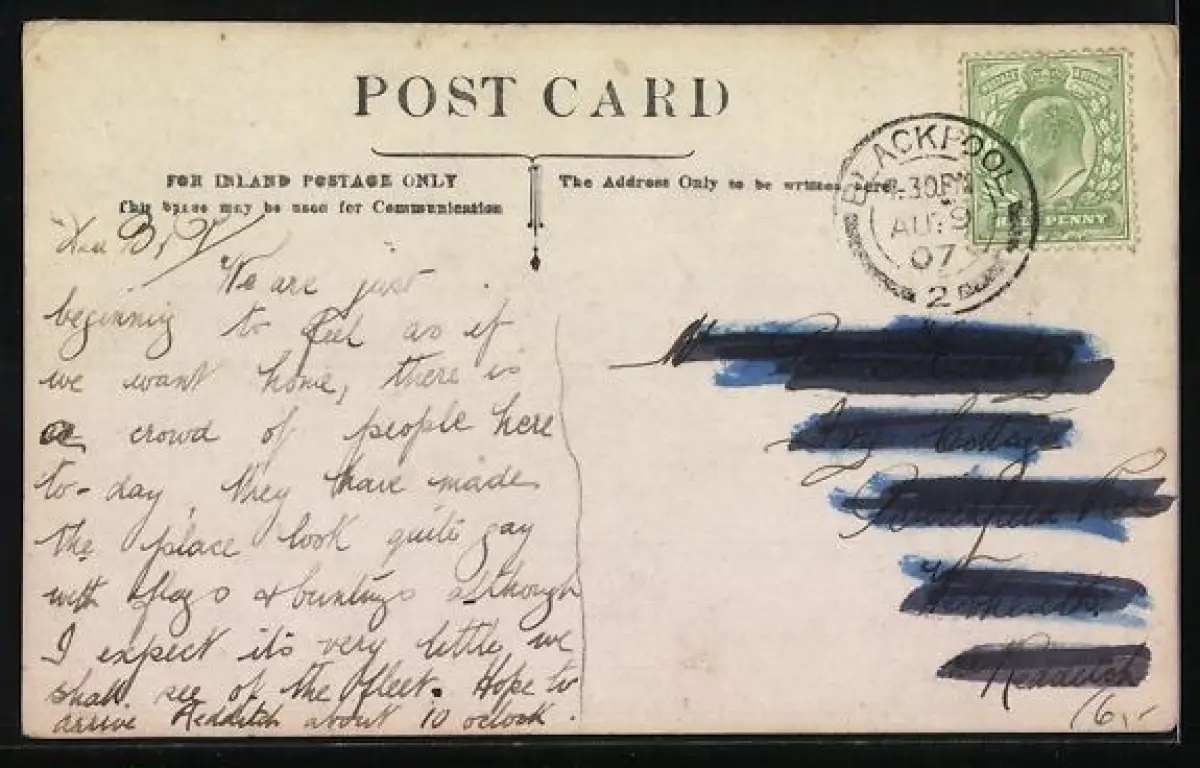 POST CARD
FOR INLAND POSTAGE ONLY
This space may be used for Communication
The Address Only to be written here
BLACKPOOL
.30PM
AU 9
07
2
HALF PENNY
Dear B
We are just
beginning to feel as if
we want home, there is
a crowd of people here
to-day, they have made
the place look quite gay
with flags & buntings although
I expect its very little we
shall see of the fleet. Hope to
arrive Redditch about 10 oclock.
Ivy Cottage
Redditch
16,-